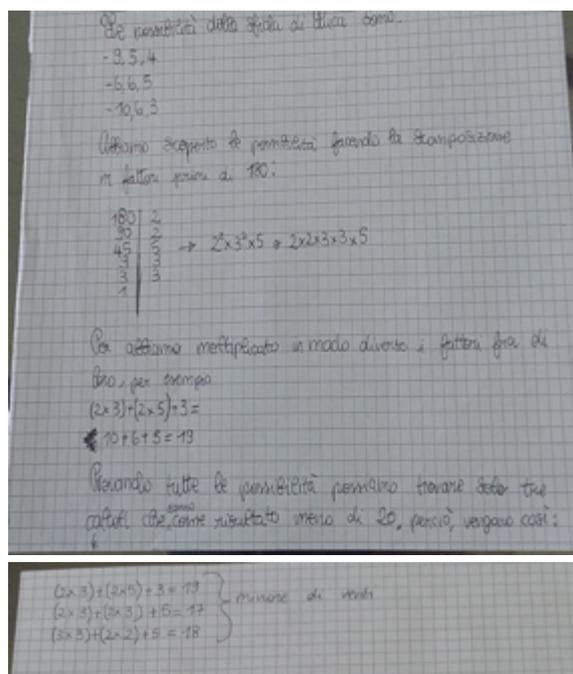 Le possibilità della sfida di Luca sono:
- 9, 5, 4
- 6, 6, 5
- 10, 6, 3
Abbiamo scoperto le possibilità facendo la scomposizione
in fattori primi di 180:
180 | 2
90 | 2
45 | 5
9 | 3
3 | 3
1 |
→ 2²x3²x5 = 2x2x3x3x5
Poi abbiamo moltiplicato in modo diverso i fattori fra di
loro, per esempio
(2x3)+(2x5)+3=
10+6+3=19
Provando tutte le possibilità possiamo trovare solo tre
calcoli che, come risultato meno di 20, perciò, vengono così:
(2x3)+(2x5)+3=19
(2x3)+(2x3)+5=17
(3x3)+(2x2)+5=18
minore di venti